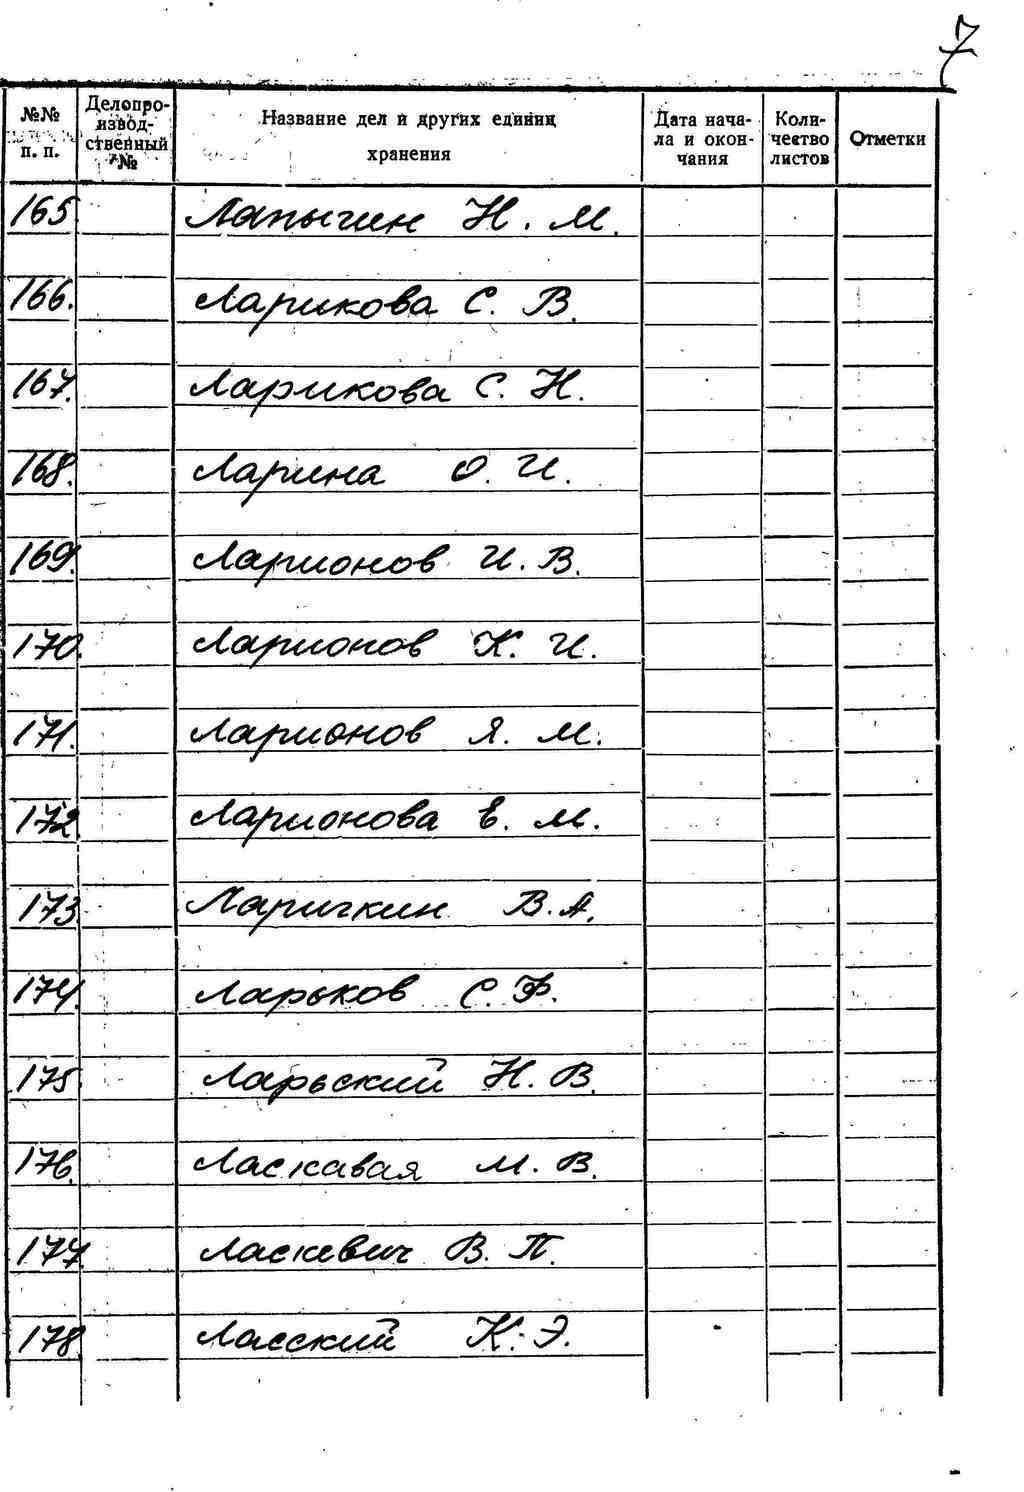 7
№№ п. п. Делопро-извод-ственный № Название дел и других единиц хранения Дата нача-ла и окон-чания Коли-чество листов Отметки
165. Лапыгин Н. М.
166. Ларикова С. В.
167. Ларикова С. Н.
168. Ларина О. И.
169. Ларионов И. В.
170. Ларионов К. И.
171. Ларионов Я. М.
172. Ларионова Е. М.
173. Ларичкин В. А.
174. Ларьков С. Ф.
175. Ларьский Н. В.
176. Ласкавая М. В.
177. Ласкевич В. П.
178. Ласский К. Э.